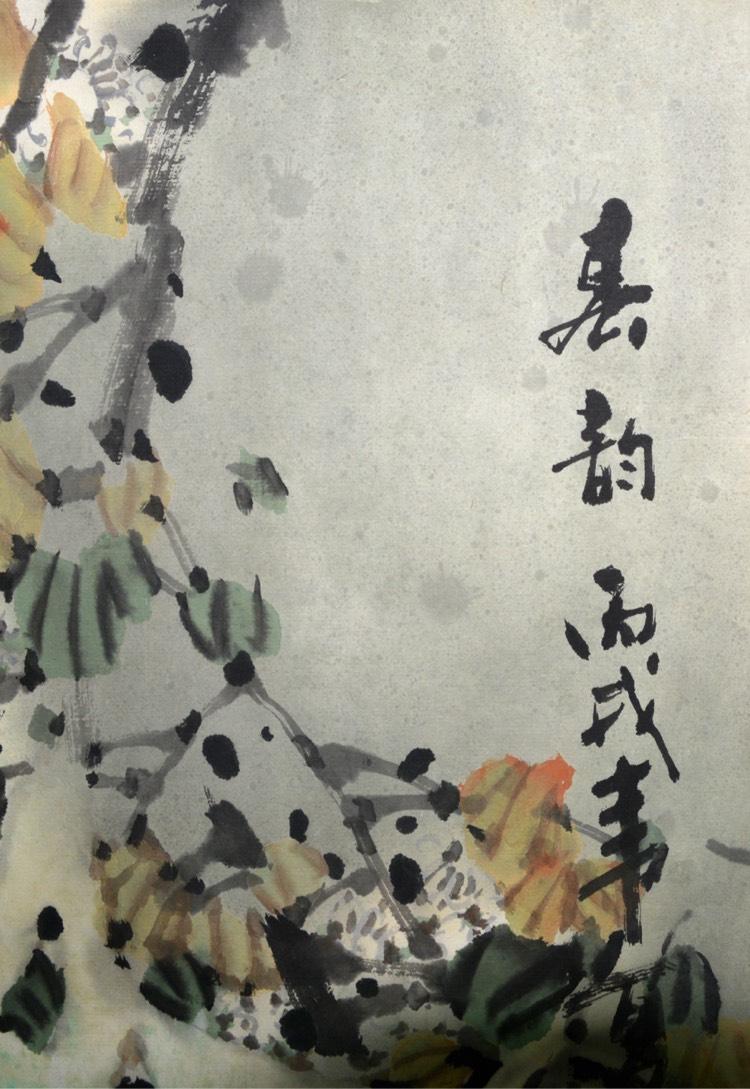 春韵丙戌年